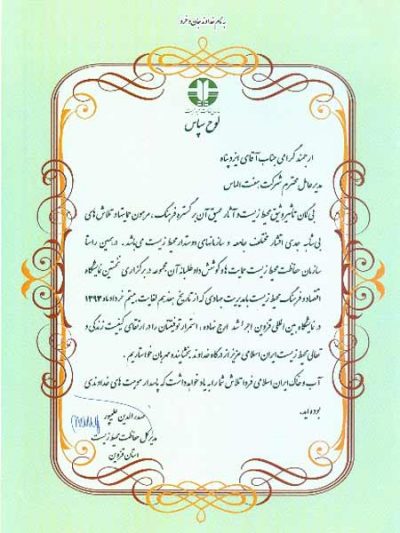 به نام خداوند جان و خرد
سازمان حفاظت محیط زیست
لوح سپاس
ارجمند گرامی جناب آقای ایزدپناه
مدیرعامل محترم شرکت هفت الماس
بی گمان تاثیر وثیق محیط زیست و آثار عمیق آن بر گستره فرهنگ، مرهون حمایتها و تلاش های
بی شائبه جدی اقشار مختلف جامعه و سازمانهای دوستدار محیط زیست می باشد. در همین راستا
سازمان حفاظت محیط زیست حمایت ها و کوشش داوطلبانه آن مجموعه در برگزاری نخستین نمایشگاه
اقتصاد و فرهنگ محیط زیست با مدیریت جهادی که از تاریخ هفدهم لغایت بیستم خرداد ماه ۱۳۹۳
در نمایشگاه بین المللی قزوین اجرا شد ارج نهاده، استمرار توفیقتان را در ارتقای کیفیت زندگی و
تعالی محیط زیست ایران اسلامی عزیز از درگاه خداوند بخشاینده مهربان خواستاریم.
آب و خاک ایران اسلامی فردا تلاش شما را به یاد خواهد داشت که پاسدار موهبت های خداوندی
بوده اید.
صدرالدین علیپور
مدیرکل حفاظت محیط زیست
استان قزوین